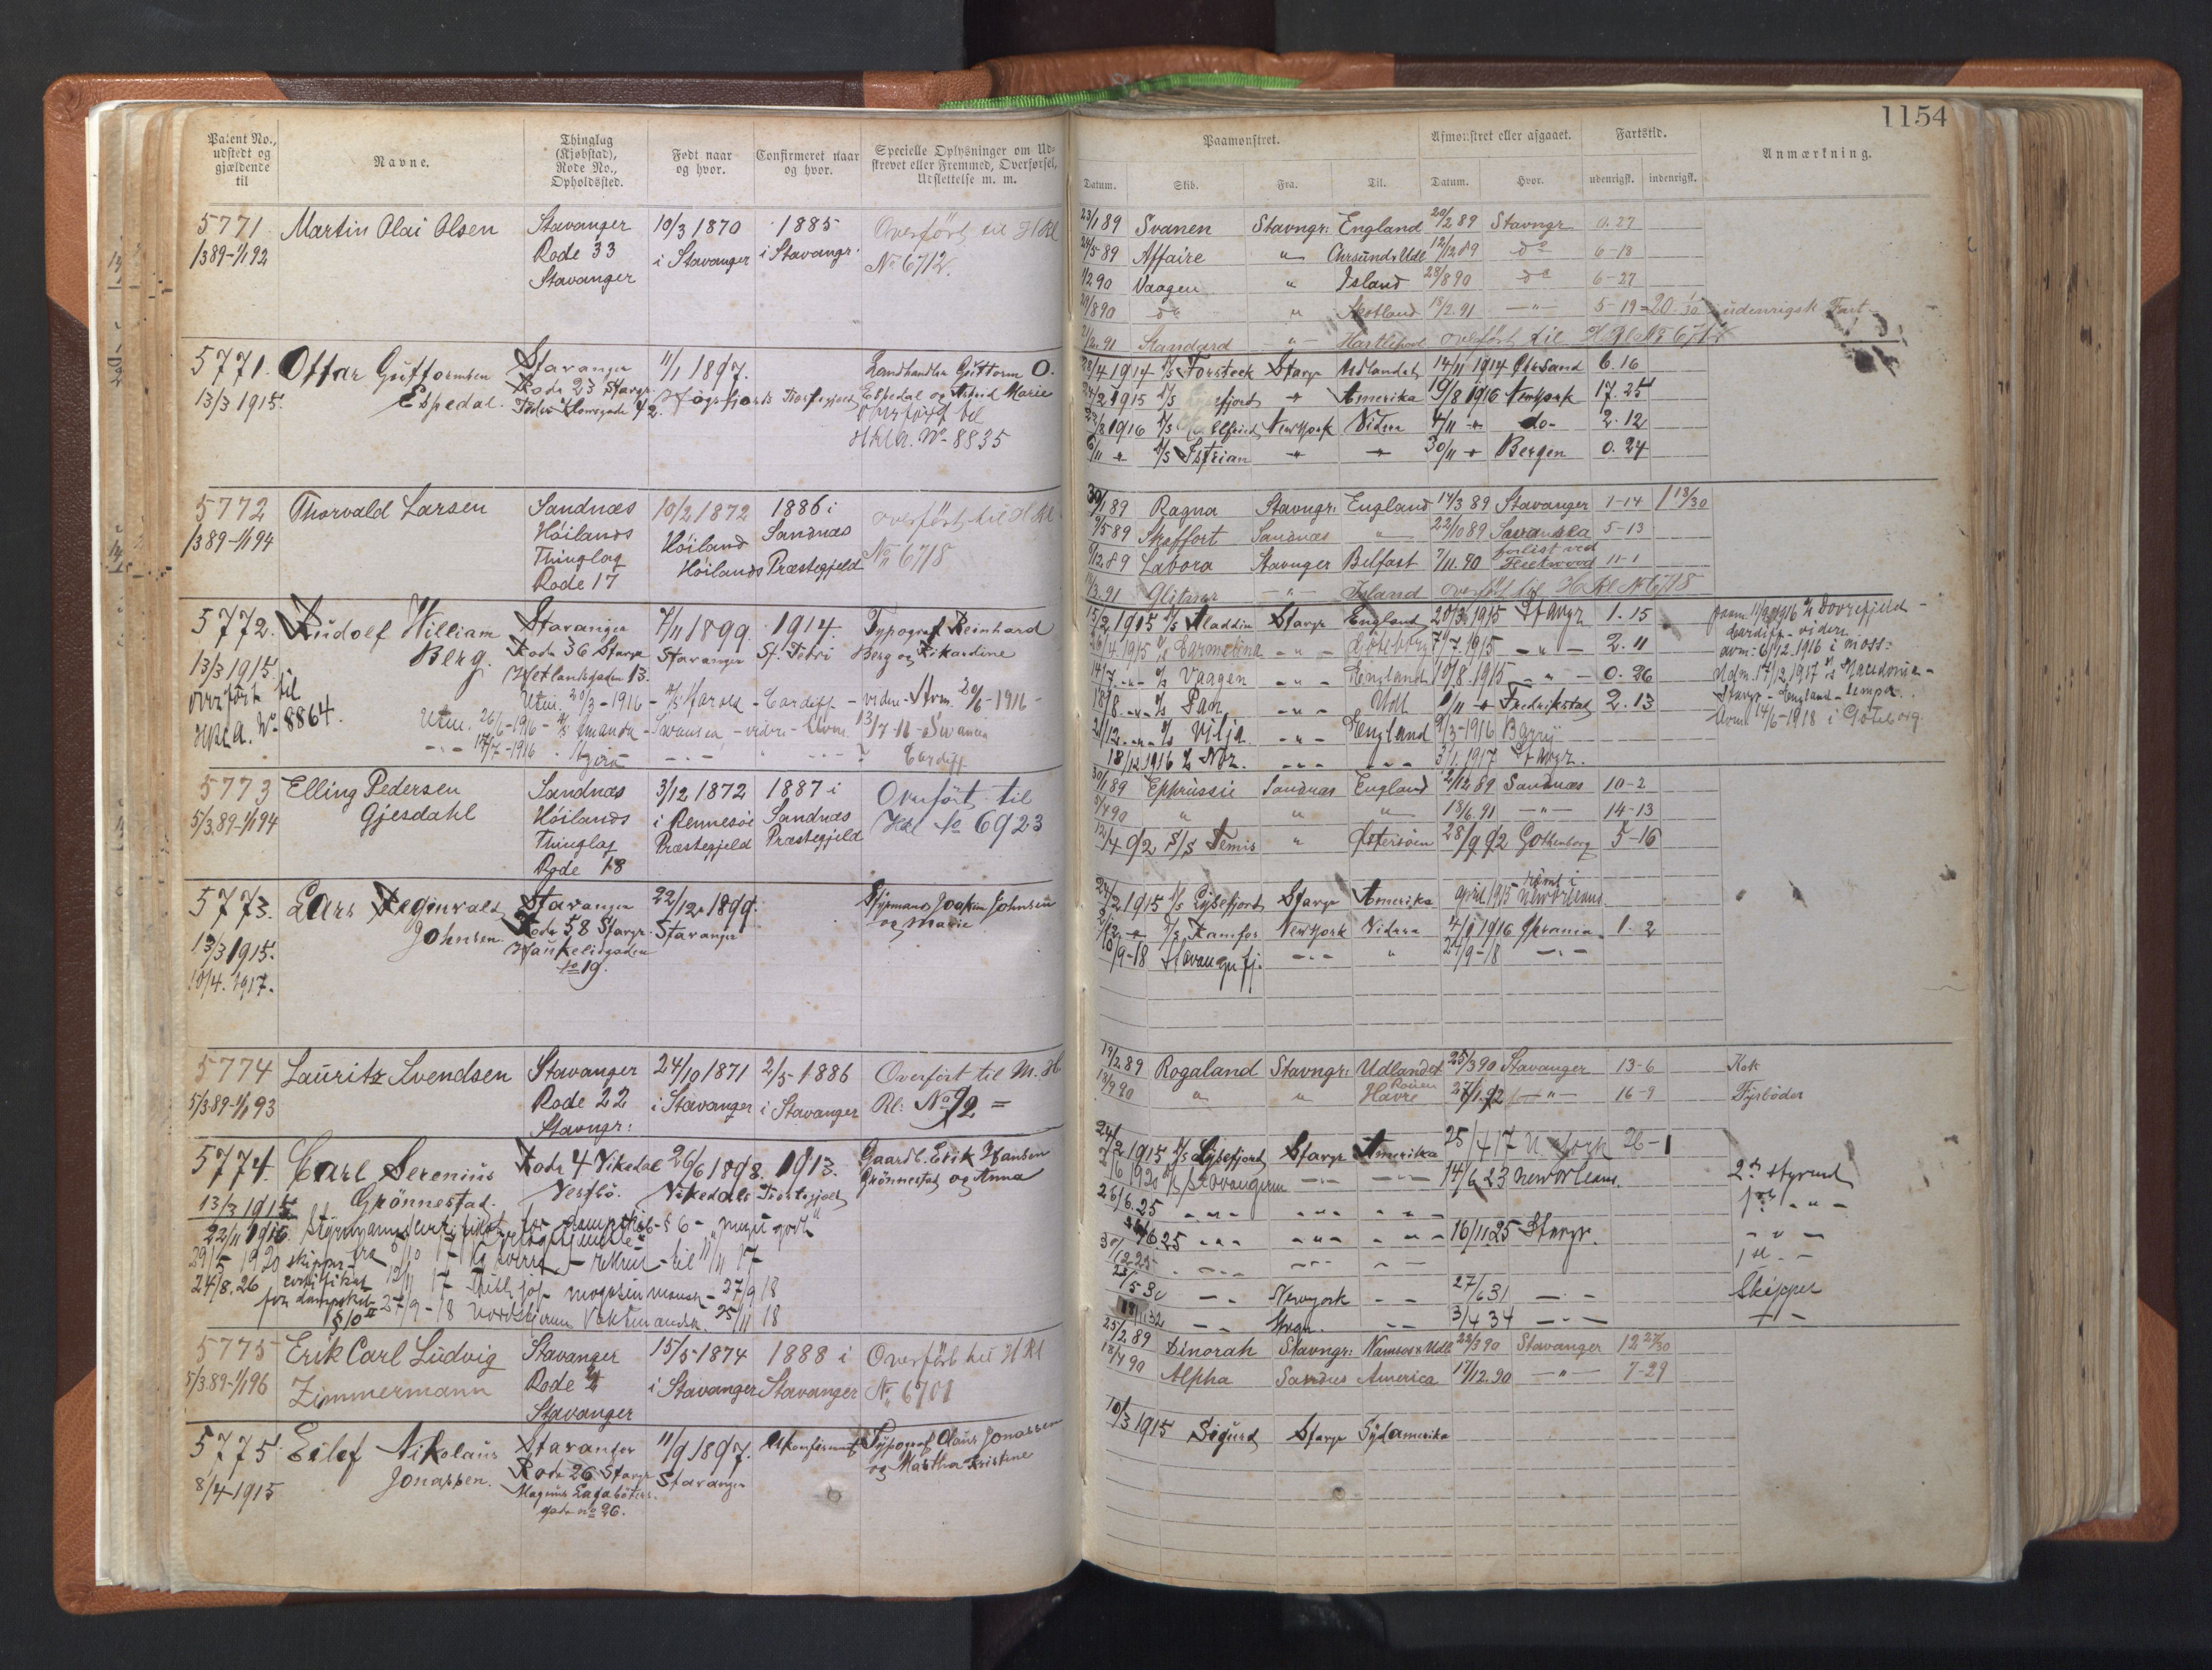 1154
Patent No., udstedt og gjældende til
Navne.
Thinglag (Kjøbstad), Rode No., Opholdssted.
Født naar og hvor.
Confirmeret naar og hvor.
Specielle Oplysninger om Udskrevet eller Fremmed, Overførsel, Udslettelse m. m.
Paamønstret.
Afmønstret eller afgaaet.
Fartstid.
Anmærkning.
Datum. Skib. Fra. Til. Datum. Hvor. udenrigsk. indenrigsk.
5771 Martin Olai Olsen Stavanger 10/3 1870 1885 Overfört til H Rl
1/3 89-1/1 92 Rode 33 i Stavanger i Stavangr. No 6712.
Stavanger
23/1 89 Svanen Stavngr: England 20/2 89 Stavngr 0-27
24/5 89 Affaire " Chrsund & Udl 12/12 89 do 6-18
1/2 90 Vaagen " Island 28/8 90 do 6-27
29/8 90 do " Skotland 18/2 91 -"- 5-19 = 20 1/30 udenrigsk Fart
21/2 91 Standard -"- Hartlepool overfört til H Rl No 6712
5771. Ottar Guttormsen Stavanger 11/1 1897. Landhandler Guttorm O.
13/3 1915. Espedal. Rode 23 Stavgr. Høgsfjords Præstegjeld Espedal og Astrid Marie
Peder Klowsgade 42. overförd til
H Rl A. No 8835
28/4 1914 D/S Forsteck Stavgr Udlandet 14/11 1914 Chrsand 6.16
24/2 1915 D/S Lysefjord " Amerika 19/8 1916 NewYork 17.25
1916 D/S NewYork Vidre 4/11 " do- 2.12
6/11 " D/S Istrian " " 30/11 " Bergen 0.24
5772 Thorvald Larsen Sandnæs 10/2 1872 1886 i overfört til H Rl
1/3 89-1/1 94 Höilands Höiland Sandnæs No 6718
Thinglag Höilands Præstegjeld
Rode 17
30/1 89 Ragna Stavngr: England 14/3 89 Stavanger 1-14 1 13/30
9/5 89 Skaffort Sandnæs " 22/10 89 Swansea 5-13
6/12 89 Labora Stavnger Belfast 7/11. 90 forlist ved Fleetwood 11-1
3.91 Glitner -"- Island overfört til H Rl No 6718
5772. Rudolf William Stavanger 7/11 1899. 1914. Typograf Reinhard
13/3 1915. Berg. Rode 36 Stavgr Stavanger St. Petri Berg og Rikardine
overfört til Hetlandsgaden 13.
H Rl A. No 8864. Utm. 30/3-1916 - D/S Harald - Cardiff - vidre - Avm. 20/6-1916 -
Utm. 26/6-1916 - D/S Amanda - Swansea - vidre - Avm. 13/7-16 - Swansea
-"- 17/7-1916 - -"- Cardiff
15/2 1915 D/S Aladdin Stavgr England 20/3 1915 Stavgr 1.15
26/4 1915 D/S Carmelina -"- Göteborg 7/7 1915 -"- 2.11
14/7 -"- D/S Vaagen -"- England 10/8. 1915 -"- 0.26
18/8 -"- D/S Pan -"- Udl 1/11 " Fredrikstad 2.13
21/12 -"- D/S Vilja -"- England 9/3-1916 Barry
18/12 1916 D/S Nor. -"- -"- 3/1. 1917 Stavgr.
Paam. 11/8 1916 D/S Dovrefjeld -
Cardiff - vidre.
avm. 6/12. 1916 i Moss.
Udm. 17/12 1917 D/S Macedonia -
Stavgr - England - tempr.
Avm. 14/6-1918 i Göteborg.
5773 Elling Pedersen Sandnæs 3/12 1872 1887 i Overfört til
5/3 89-1/1 94 Gjesdahl Höilands i Rennesöe Sandnæs H Rl No 6923
Thinglag Præstegjeld Præstegjeld
Rode 18
30/1 89 Ephrussie Sandnæs England 2/12 89 Sandnæs 10-2
5/4 90 " " " 18/6. 91 -"- 14-13
12/4 92 S/S Temis " Østersöen 28/9 92 Gothenborg 5-16
5773. Lars Regenvald Stavanger 22/12 1899. Styrmand Joakim Johnsen
13/3 1915. Johnsen. Rode 58 Stavgr. Stavanger og Marie
10/4. 1917. Haukeligaden
No 19.
24/2 1915 D/S Lysefjord Stavgr Amerika april 1915 römt i NewOrleans
2/12 " D/S Ramfos NewYork Vidre 4/1 1916 Chrania 1.2
10/9-18 Stavangerfj. -"- " 24/9-18 -"-
5774 Lauritz Svendsen Stavanger 24/10 1871 2/5 1886 Overfört til M. H
5/3 89-1/1 93 Rode 22 i Stavanger i Stavanger Rl: No 92 =
Stavngr:
19/2 89 Rogaland Stavngr: Udlandet 25/3 90 Stavanger 13-6 Kok
13/9 90 " " Rouen Havre 27/1. 92 -"- 16-9 Fyrböder
5774. Carl Serenius Rode 4 Vikedal 26/6 1898. 1913. Gaardb. Erik Hansen
13/3 1915 Grönnestad. Vestbö. Vikedals Præstegjeld Grönnestad og Anna
22/11 1916 Styrmannscertifikat for dampskib - § 6 - "meget godt"
29/5 1920 skipper- til 11/11 17
24/8. 26 certifikat 12/11 17 - 27/9 18
for dampskib 27/9-18 25/11 18
§ 10
24/2 1915 D/S Lysefjord Stavgr Amerika 25/4 17 N York 26-1
2/6 1920 D/S Stavangeren -"- -"- 14/6 23 New Orleans. 2den styrmd
26/6. 25 -"- -"- -"- 1ste -"-
26/6. 25 -"- -"- -"- 16/11 25 Stavgr. -"-
30/12 25 -"- -"- -"- 1st. -"-
23/5 30 -"- Newyork -"- 27/6 31 -"- Skipper
18/11 32 -"- Stvgr. -"- 3/4 34 -"- -"-
5775 Erik Carl Ludvig Stavanger 15/5 1874 1888 i Overfört til H Rl
5/3 89-1/1 96 Zimmermann Rode 2 i Stavanger Stavanger No 6701
Stavanger
25/2 89 Dinorah Stavngr: Namsos & Udl. 22/3 90 Stavanger 12 27/30
18/4 90 Alpha Sandnes America 17/12. 90 -"- 7-29
5775. Eilef Nikolaus Stavanger 11/9 1897. Ukonfirmert Typograf Olaus Jonassen
8/4 1915 Jonassen. Rode 26 Stavgr Stavanger og Martha Kristine
Magnus Lagaböters
gade no 26.
10/3 1915 Sigurd Stavgr Sydamerika